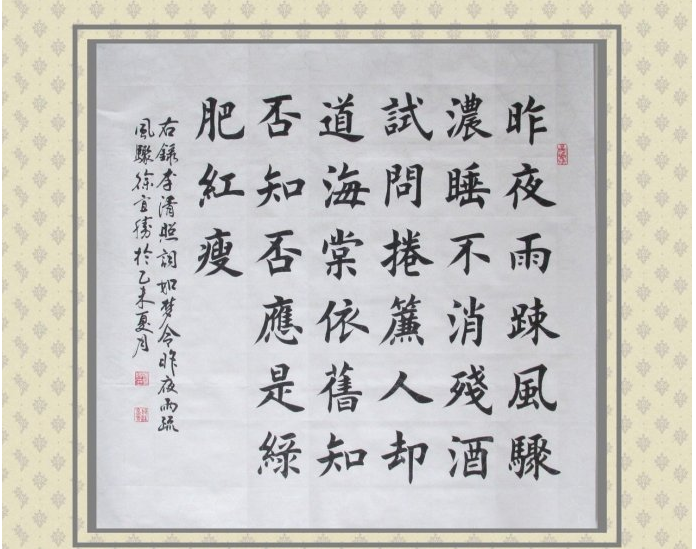 昨夜雨踈風驟
濃睡不消殘酒
試問捲簾人却
道海棠依舊知
否知否應是綠
肥紅瘦
右錄李清照詞如梦令昨夜雨疏
風驟徐宜勝於乙未夏月